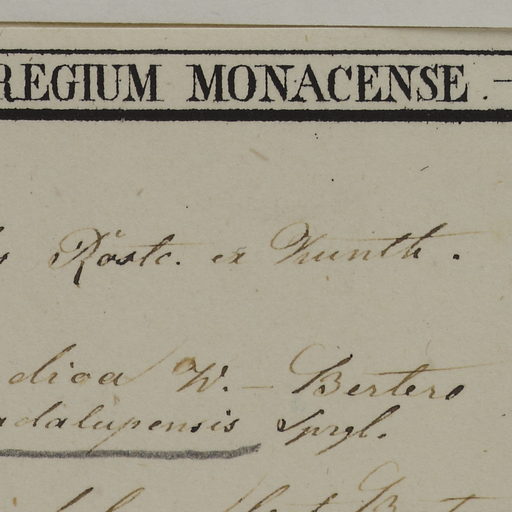 REGIUM MONACENSE.
Rostc. ex Kunth.
dica W. – Bertero
adalupensis Sprgl.